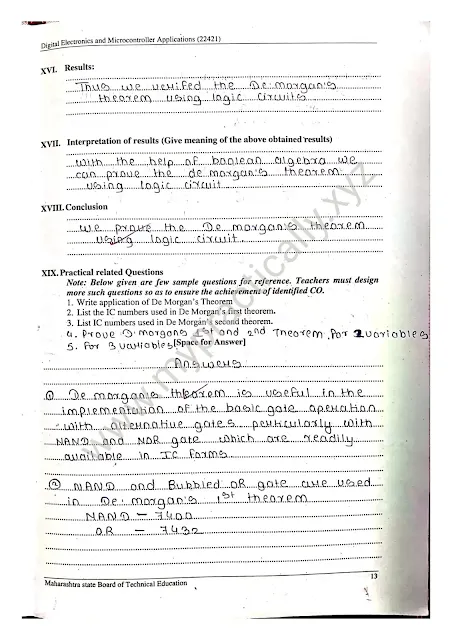 Digital Electronics and Microcontroller Applications (22421)
XVI. Results:
Thus we verifed the De morgan's
theorem using logic circuits
XVII. Interpretation of results (Give meaning of the above obtained results)
with the help of boolean algebra we
can prove the de morgan's theorem
using logic circuit
XVIII. Conclusion
we prove the De morgan's theorem
using logic circuit.
XIX. Practical related Questions
Note: Below given are few sample questions for reference. Teachers must design
more such questions so as to ensure the achievement of identified CO.
1. Write application of De Morgan's Theorem
2. List the IC numbers used in De Morgan's first theorem.
3. List IC numbers used in De Morgan's second theorem.
4. Prove D'morgons 1st and 2nd Theorem for 2 variables
5. For 3 variables [Space for Answer]
Answers
① De morgan's theorem is useful in the
implementation of the basic gate operation
with alternative gates perticularly with
NAND and NOR gate which are readily
available in IC forms
② NAND and Bubbled OR gate are used
in De' morgan's 1st theorem
NAND - 7400
OR - 7432
Maharashtra state Board of Technical Education
13
www.mypractically.xyz